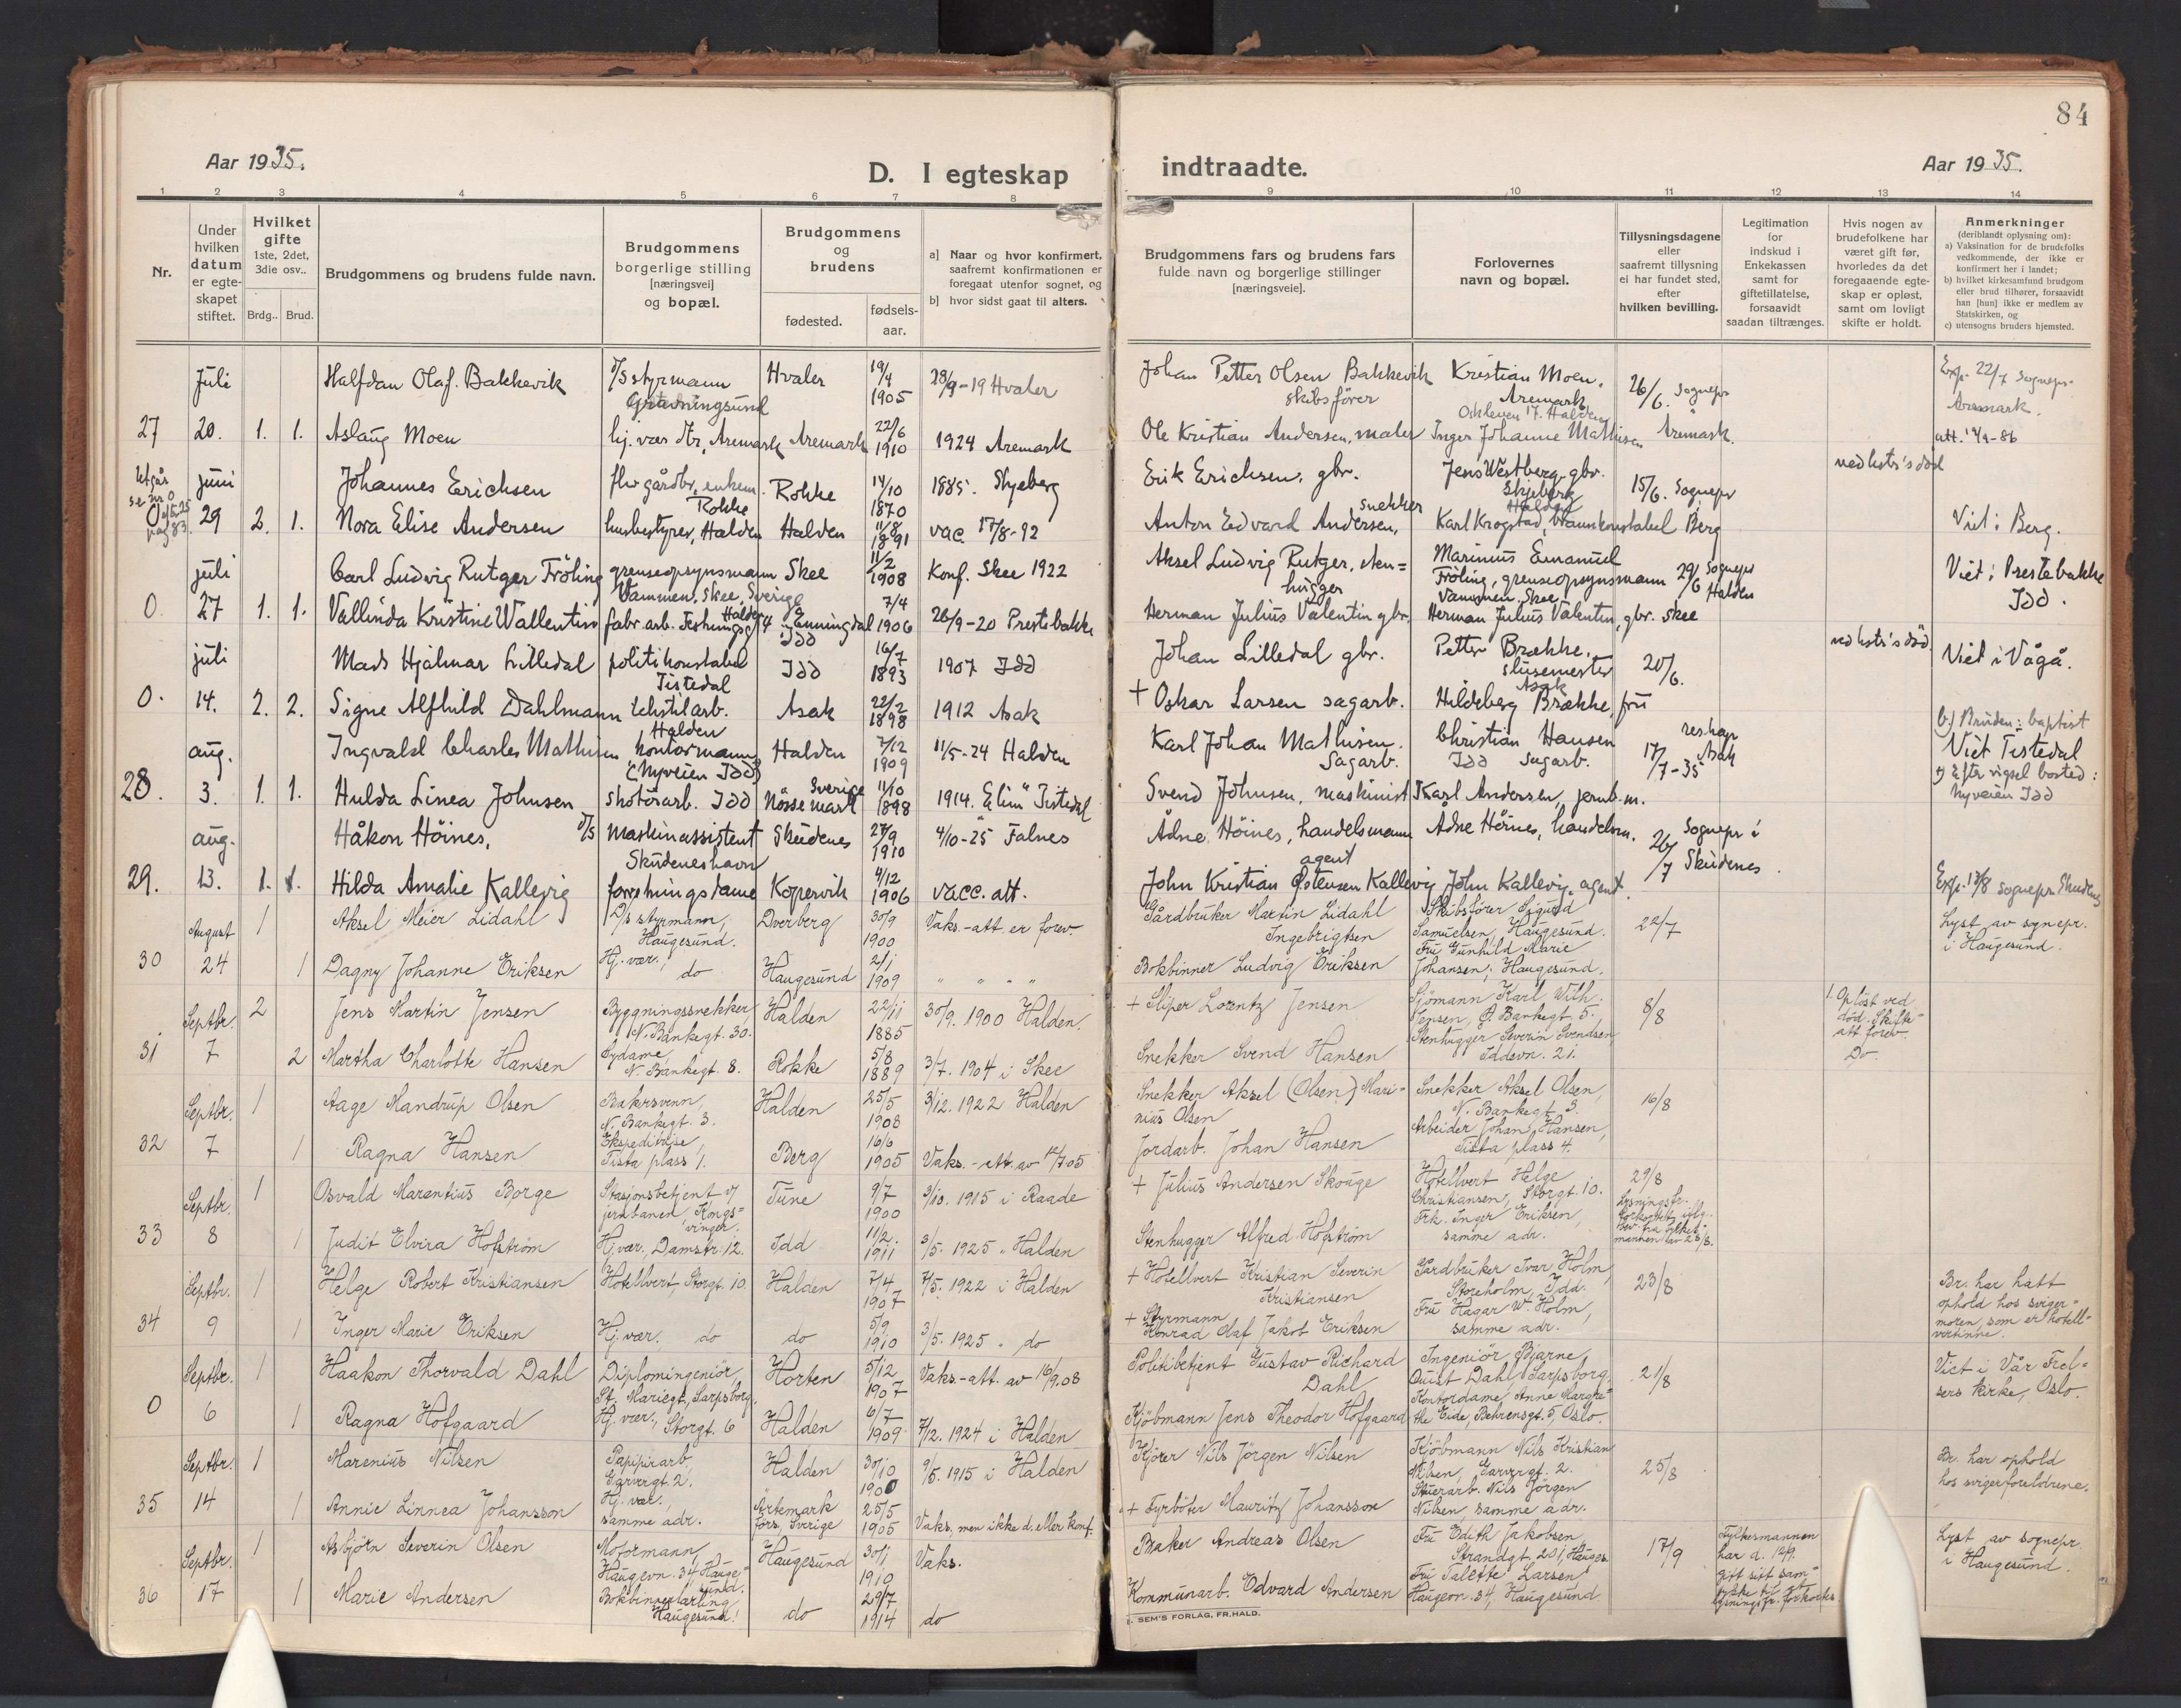 84
Aar 1935.
D. I egteskap
indtraadte.
Aar 1935.
1 2 3 4 5 6 7 8 9 10 11 12 13 14
Nr.
Under hvilken datum er egteskapet stiftet.
Hvilket gifte 1ste, 2det, 3die osv..
Brdg.. Brud.
Brudgommens og brudens fulde navn.
Brudgommens borgerlige stilling [næringsvei] og bopæl.
Brudgommens og brudens
fødested.
fødsels-aar.
a] Naar og hvor konfirmert, saafremt konfirmationen er foregaat utenfor sognet, og
b] hvor sidst gaat til alters.
Brudgommens fars og brudens fars fulde navn og borgerlige stillinger [næringsveie].
Forlovernes navn og bopæl.
Tillysningsdagene eller saafremt tillysning ei har fundet sted, efter hvilken bevilling.
Legitimation for indskud i Enkekassen samt for giftetillatelse, forsaavidt saadan tiltrænges.
Hvis nogen av brudefolkene har været gift før, hvorledes da det foregaaende egteskap er opløst, samt om lovligt skifte er holdt.
Anmerkninger (deriblandt oplysning om):
a) Vaksination for de brudefolks vedkommende, der ikke er konfirmert her i landet;
b) hvilket kirkesamfund brudgom eller brud tilhører, forsaavidt han [hun] ikke er medlem av Statskirken, og
c) utensogns bruders hjemsted.
Juli Halfdan Olaf. Bakkevik d/s styrmann Hvaler 19/4 1905 28/9-19 Hvaler Johan Petter Olsen Bakkevik skibsfører Kristian Moen. Aremark 26/6. Sognepr Exp. 22/7 Sognepr. Aremark.
27 20. 1. 1. Aslaug Moen hj. vær dtr, Aremark Aremark 22/6 1910 1924 Aremark Ole Kristian Andersen, maler Inger Johanne Mathisen Aremark.
Utgår se nr 0 juni Johannes Erichsen flv gårdbr, enkem. Rokke Rokke 14/10 1870 1885. Skjeberg Erik Erichsen, gbr. Jens Westberg, gbr. Skjeberg 15/6. Sognepr ved hstr's död
29 2. 1. Nora Elise Andersen husbestyrer, Halden Halden 11/8 1891 vac. 17/8-92 Anton Edvard Andersen, snekker Karl Krogstad, Halden Berg Viet i Berg.
juli Carl Ludvig Rutger Fröling grenseopsynsmann Vammen, Skee, Sverige Skee 11/2 1908 Konf. Skee 1922 Aksel Ludvig Rutger, stenhugger Marinius Emanuel Fröling, grenseopsynsmann Vammen. Skee 29/6 Sognepr Halden Viet i Prestebakke Idd.
0. 27 1. 1. Vallinda Kristine Wallentin fabr. arb. Halden Enningdal Idd 7/4 1906 26/9-20 Prestebakke Herman Julius Valentin gbr. Herman Julius Valentin, gbr. Skee
juli Mads Hjalmar Lilledal politikonstabel Tistedal Idd 16/7 1893 1907 Idd Johan Lilledal gbr. Petter Brække, slusemester Asak 20/6. ved hstr's död Viet i Vågå.
0. 14. 2. 2. Signe Alfhild Dahlmann tekstilarb. Halden Asak 22/2 1898 1912 Asak + Oskar Larsen sagarb. Hildeberg Brække, fru
aug. Ingvald Charles Mathisen kontormann (Nyveien Idd) Halden 7/12 1909 11/5-24 Halden Karl Johan Mathisen. Sagarb. Christian Hansen Idd Sagarb. 17/7-35 reskap Asak b.) Bruden: baptist Viet Tistedal
28. 3. 1. 1. Hulda Linea Johnsen skotöiarb. Idd Sverige Nössemark 11/10 1898 1914. "Elim" Tistedal Svend Johnsen, maskinist Karl Andersen, jernb.m. Efter vigsel bosted: Nyveien Idd
aug. Håkon Höines, d/s Maskinassistent Skudeneshavn Skudenes 27/9 1910 4/10-25 Falnes Ådne Höines, handelsmann Adne Höines, handelsm. 26/7 Sognepr i Skudenes.
29. 13. 1. 1. Hilda Amalie Kallevig forretningsdame Kopervik 4/12 1906 vacc. att. John Kristian Östensen Kallevig agent John Kallevig, agent. Exp. 13/8 sognepr Skudenes
August 1 Aksel Meier Lidahl D/s styrmann, Haugesund. Dverberg 30/9 1900 Vaks.-att er forev. Gårdbruker Martin Lidahl Ingebrigtsen Skibsförer Sigurd Samuelsen, Haugesund. 22/7 Lyst av sognepr. i Haugesund.
30 24 1 Dagny Johanne Eriksen Hj. vær., do Haugesund 2/1 1909 " " " " Bokbinner Ludvig Eriksen Fru Gunhild Marie Johansen, Haugesund.
Septbr. 2 Jens Martin Jensen Bygningssnekker, N. Bankegt. 30. Halden 22/11 1885 30/9. 1900 Halden. + Sliper Lorentz Jensen Sjömann Karl Wilh. Jensen, Ö. Bankegt. 5. 8/8 1. Opløst ved död. Skifteatt forev.
31 7 2 Martha Charlotte Hansen Sydame, N. Bankegt. 8. Rokke 5/8 1889 3/7. 1904 i Skee Snekker Svend Hansen Stenhugger Severin Svendsen Iddevn. 21. Do
Septbr. 1 Aage Mandrup Olsen Bakersvenn, N. Bankegt. 3. Halden 25/5 1908 3/12. 1922 Halden Snekker Aksel (Olsen) Marinius Olsen Snekker Aksel Olsen, N. Bankegt. 3. 16/8
32 7 1 Ragna Hansen Ekspeditrise, Tista plass 1. Berg 16/6 1905 Vaks.-att. av 12/7 05 Jordarb. Johan Hansen Arbeider Johan Hansen, Tista plass 4.
Septbr. 1 Osvald Marentius Borge Stasjonsbetjent v/ jernbanen, Kongsvinger. Tune 9/7 1900 3/10. 1915 i Raade + Julius Andersen Skouge Hotellvert Helge Christiansen, Storgt. 10. 29/8
33 8 1 Judit Elvira Hofström Hj. vær., Damstr. 12. Idd 11/2. 1911 3/5. 1925 " Halden Stenhugger Alfred Hofström Frk. Inger Eriksen, samme adr. Lysningsfr. forkortet iflg. bev. fra fylkesmannen av 28/8.
Septbr. 1 Helge Robert Kristiansen Hotellvert, Storgt. 10. Halden 7/4 1907 7/5. 1922 i Halden + Hotellvert Kristian Severin Kristiansen Gårdbruker Ivar Holm, Storeholm, Idd. 23/8 Br. har hatt ophold hos svigermoren, som er hotellvertinne.
34 9 1 Inger Marie Eriksen Hj. vær. do do 5/9 1910 3/5. 1925 " do + Styrmann Konrad Olaf Jakob Eriksen Fru Hagar W. Holm, samme adr.
Septbr. 1 Haakon Thorvald Dahl Diplomingeniör, St. Mariegt, Sarpsborg. Horten 5/12 1907 Vaks.-att. av 16/9.08 Politibetjent Gustav Richard Dahl Ingeniör Bjarne Quist Dahl, Sarpsborg. 21/8 Viet i Vår Frelsers kirke, Oslo.
0 6 1 Ragna Hofgaard Hj. vær., Storgt. 6 Halden 6/7 1909 7/12. 1924 i Halden Kjöbmann Jens Theodor Hofgaard Kontordame, Anne Margrethe Eide, Behrensgt. 5, Oslo.
Septbr. 1 Marenius Nilsen Papirarb. Garvergt. 2. Halden 30/10 1900 9/5. 1915 i Halden Kjörer Nils Jörgen Nilsen Kjöbmann Nils Kristian Nilsen, Garvergt. 2. 25/8 Br. har ophold hos svigerforeldrene.
35 14 1 Annie Linnea Johansson Hj. vær., samme adr. Ärtemark förs, Sverige 25/5 1905 Vaks., men ikke d. eller konf. + Fyrböter Mauritz Johansson Stuerarb. Nils Jörgen Nilsen, samme adr.
Septbr. 1 Asbjörn Severin Olsen Moformann, Haugevn. 34, Haugesund. Haugesund 30/1 1910 Vaks. Baker Andreas Olsen Fru Edith Jakobsen, Strandgt. 201, Hauges. 17/9 Fylkesmannen har d. 12/9. gitt sitt samtykke til at lysningsfr. forkortes. Lyst av sognepr. i Haugesund.
36 17 1 Marie Andersen Bokbinnerlærling, Haugesund. do 29/7 1914 do Kommunarb. Edvard Andersen Fru Talette Larsen Haugevn. 34, Haugesund
SEM'S FORLAG, FR.HALD.